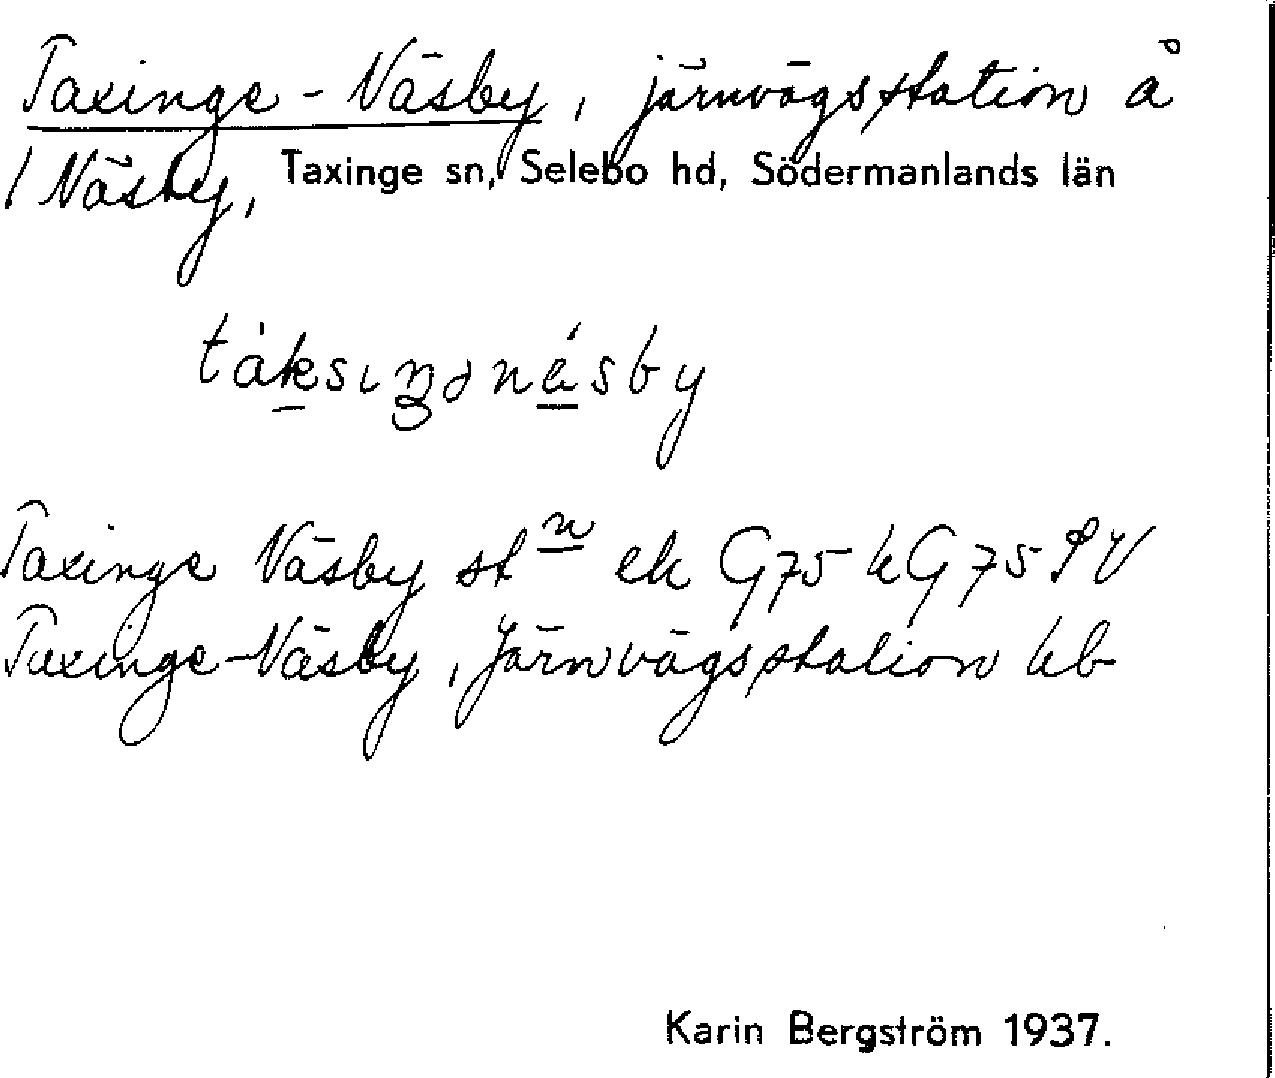 Taxinge-Näsby, järnvägsstation å
/ Näsby, Taxinge sn, Selebo hd, Södermanlands län
táksıŋənä́sby
Taxinge Näsby stn ek G75 hG75 SV
Taxinge-Näsby, Järnvägsstation hb
Karin Bergström 1937.